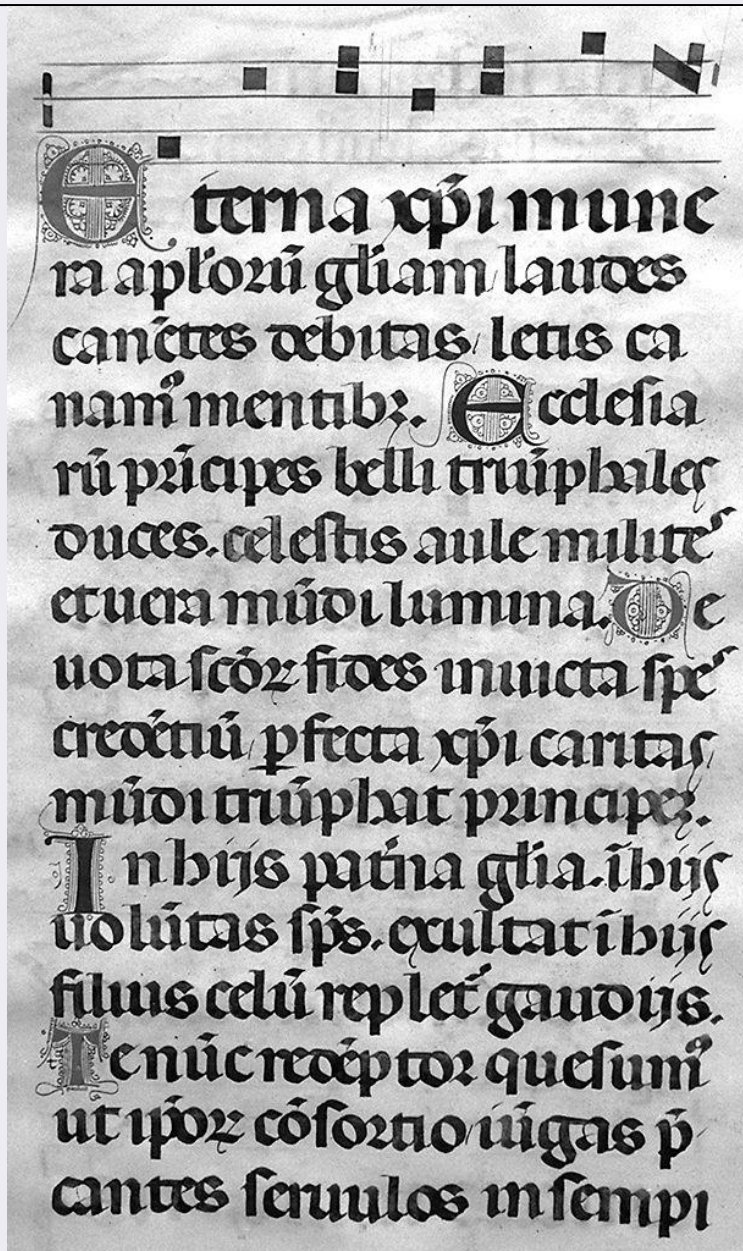 Eterna xp̄i mune
ra apl'orū gl'iam laudes
canētes debitas/ letis ca
namꝰ mentibꝫ. Ecclesia
rū prīcipes belli triūphales
duces. celestis aule milites
et uera mūdi lumina. De
uota scōꝝ fides inuicta spes
credētiū/ ꝑfecta xp̄i caritas
mūdi triūphat principeꝫ.
In hijs pat̄na gl̄ia. ī hijs
uolūtas sp̄s. exultat ī hijs
filius celū repletᷣ gaudijs.
Te nūc redēptor quesumꝰ
ut ip̄oꝝ cōsortio/ iūgas p̄
cantes seruulos in sempi